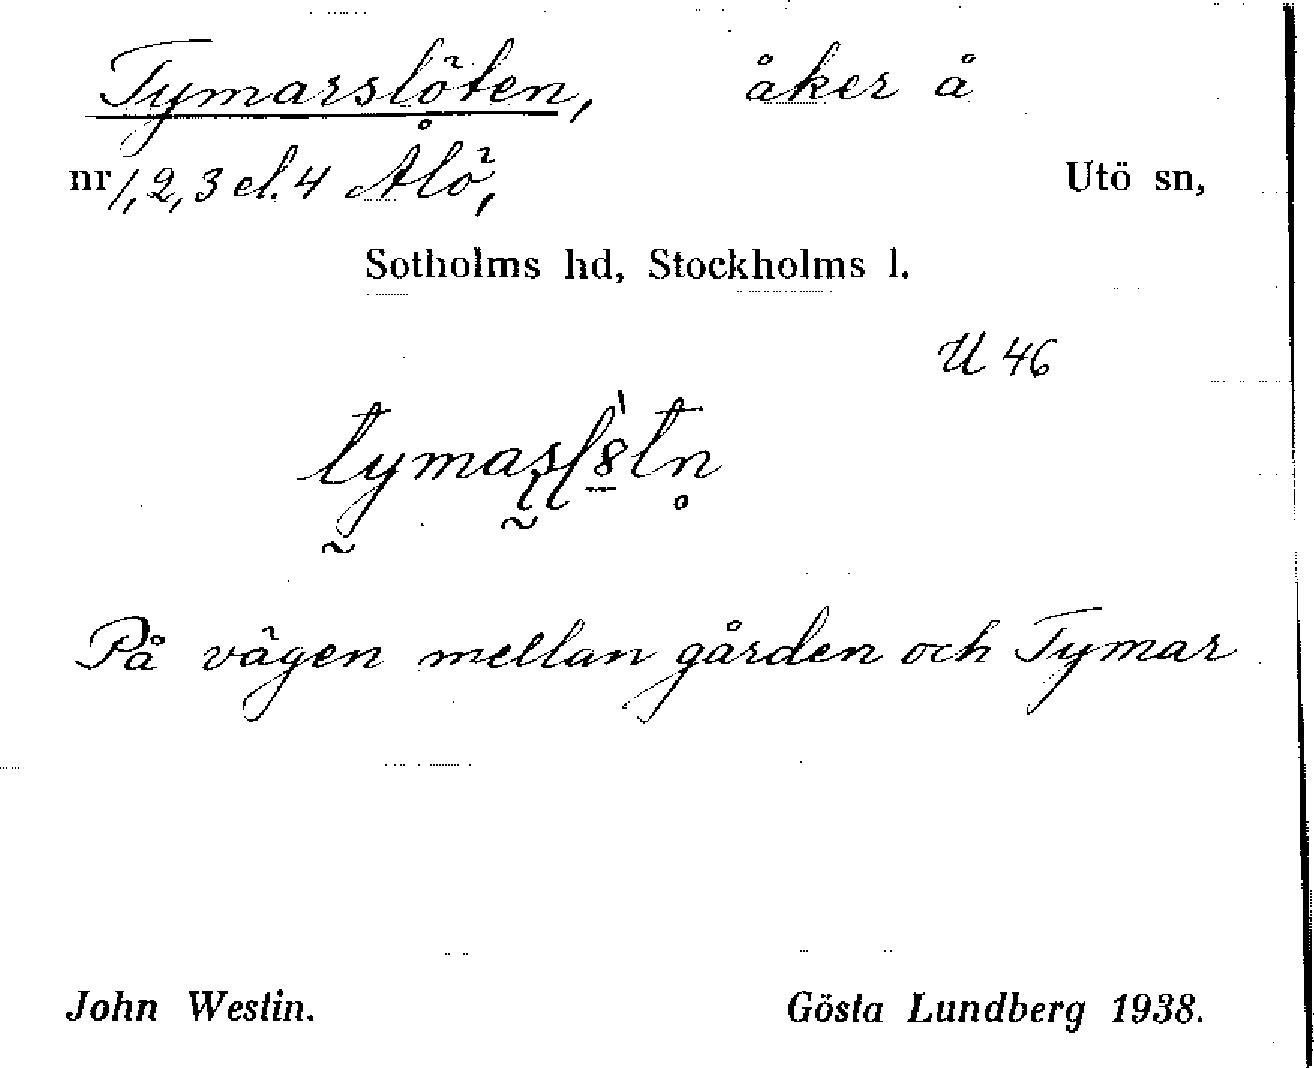 Tymarslöten, åker å
nr 1, 2, 3 el. 4 Ålö, Utö sn,
Sotholms hd, Stockholms l.
U 46
På vägen mellan gården och Tymar
John Westin. Gösta Lundberg 1938.